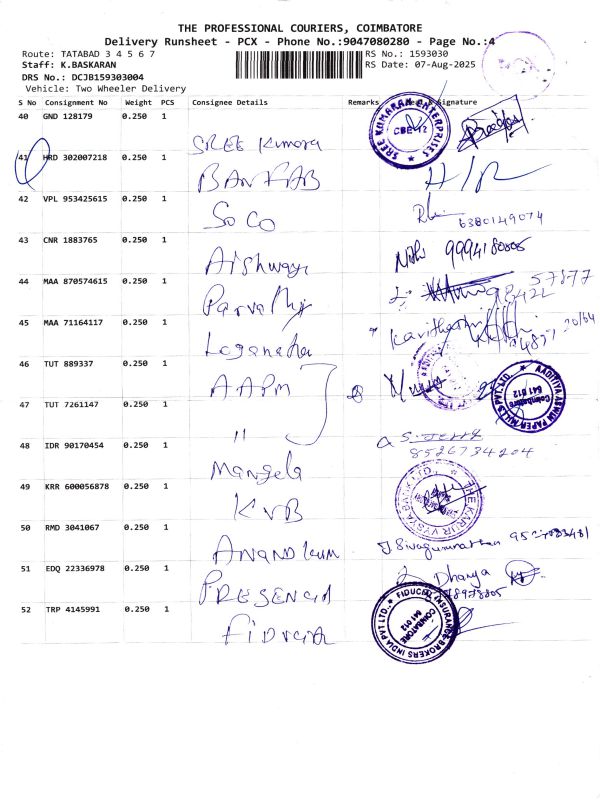 THE PROFESSIONAL COURIERS, COIMBATORE
Delivery Runsheet - PCX - Phone No.:9047080280 - Page No.:4
Route: TATABAD 3 4 5 6 7 RS No.: 1593030
Staff: K.BASKARAN RS Date: 07-Aug-2025
DRS No.: DCJB159303004
Vehicle: Two Wheeler Delivery
S No Consignment No Weight PCS Consignee Details Remarks Signature
40 GND 128179 0.250 1
SREE Kumara
SREE KUMARAN ENTERPRISES
CBE-12
41 HRD 302007218 0.250 1
H/R
42 VPL 953425615 0.250 1
SoCo
6380149074
43 CNR 1883765 0.250 1
Aishwarya
Nithi 9994180805
44 MAA 870574615 0.250 1
57877
98422
45 MAA 71164117 0.250 1
46 TUT 889337 0.250 1
AAPM
AADITIYA ASWIN PAPER MILLS PVT LTD.,
Coimbatore
641 012
47 TUT 7261147 0.250 1
"
48 IDR 90170454 0.250 1
8526734204
49 KRR 600056878 0.250 1
KVB
THE KARUR VYSYA BANK LTD.,
50 RMD 3041067 0.250 1
Anand kum
51 EDQ 22336978 0.250 1
PRESENCIA
Dhanya
52 TRP 4145991 0.250 1
Fiducia
FIDUCIA INSURANCE BROKERS INDIA PVT LTD.,
COIMBATORE
641 012